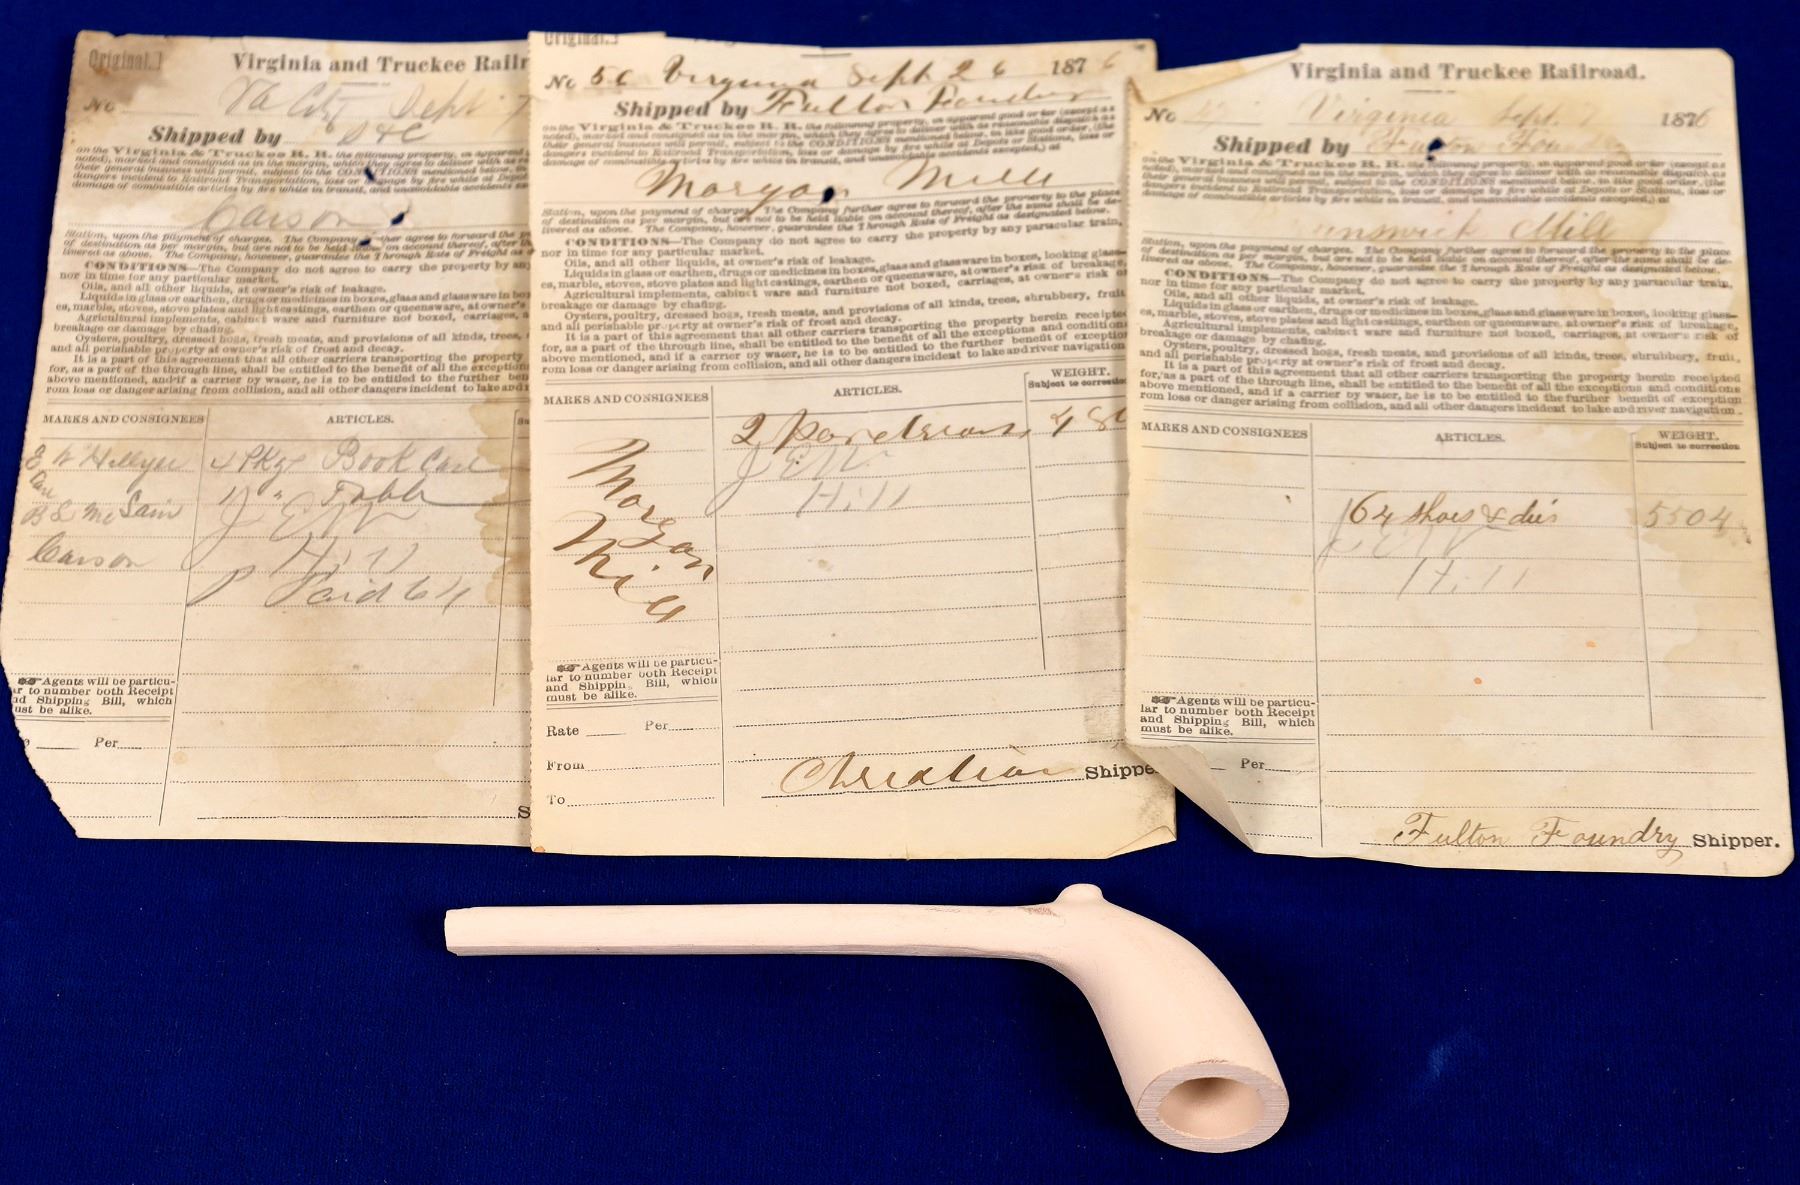 Original.]
Virginia and Truckee Railr
No Va City Sept 7
Shipped by S&C
on the Virginia & Truckee R. R. the following property, in apparent
noted), marked and consigned as in the margin, which they agree to deliver with as re
their general business will permit, subject to the CONDITIONS mentioned below, in
dangers incident to Railroad Transportation, loss or damage by fire while at Depot
damage of combustible articles by fire while in transit, and unavoidable accidents ex
Carson
Station, upon the payment of charges. The Company further agree to forward the
of destination as per margin, but are not to be held liable on account thereof, after th
livered as above. The Company, however, guarantee the Through Rate of Freight as d
CONDITIONS—The Company do not agree to carry the property by any
nor in time for any particular market.
Oils, and all other liquids, at owner's risk of leakage.
Liquids in glass or earthen, drugs or medicines in boxes, glass and glassware in box
es, marble, stoves, stove plates and light castings, earthen or queensware, at owner's
Agricultural implements, cabinet ware and furniture not boxed, carriages, a
breakage or damage by chafing.
Oysters, poultry, dressed hogs, fresh meats, and provisions of all kinds, trees,
and all perishable property at owner's risk of frost and decay.
It is a part of this agreement that all other carriers transporting the property
for, as a part of the through line, shall be entitled to the benefit of all the exception
above mentioned, and if a carrier by water, he is to be entitled to the further ben
rom loss or danger arising from collision, and all other dangers incident to lake and r
MARKS AND CONSIGNEES ARTICLES. Su
E W Hillyer 4 Pkgs Book Case
Care 11 " Table
B L McSain J E W
Carson Hill
P Paid 64
Agents will be particu-
ar to number both Receipt
nd Shipping Bill, which
ust be alike.
e Per
S
Original.]
No 56 Virginia Sept 26 1876
Shipped by Fulton Foundry
on the Virginia & Truckee R. R. the following property, in apparent good order (except as
noted), marked and consigned as in the margin, which they agree to deliver with as reasonable dispatch as
their general business will permit, subject to the CONDITIONS mentioned below, in like good order, (the
dangers incident to Railroad Transportation, loss or damage by fire while at Depots or Stations, loss or
damage of combustible articles by fire while in transit, and unavoidable accidents excepted,) at
Morgan Mill
Station, upon the payment of charges. The Company further agree to forward the property to the place
of destination as per margin, but are not to be held liable on account thereof, after the same shall be de-
livered as above. The Company, however, guarantee the Through Rate of Freight as designated below.
CONDITIONS—The Company do not agree to carry the property by any particular train,
nor in time for any particular market.
Oils, and all other liquids, at owner's risk of leakage.
Liquids in glass or earthen, drugs or medicines in boxes, glass and glassware in boxes, looking glass-
es, marble, stoves, stove plates and light castings, earthen or queensware, at owner's risk of breakage,
Agricultural implements, cabinet ware and furniture not boxed, carriages, at owner's risk o
breakage or damage by chafing.
Oysters, poultry, dressed hogs, fresh meats, and provisions of all kinds, trees, shrubbery, fruit
and all perishable property at owner's risk of frost and decay.
It is a part of this agreement that all other carriers transporting the property herein receipted
for, as a part of the through line, shall be entitled to the benefit of all the exceptions and condition
above mentioned, and if a carrier by water, he is to be entitled to the further benefit of exceptio
rom loss or danger arising from collision, and all other dangers incident to lake and river navigation
MARKS AND CONSIGNEES ARTICLES. WEIGHT.
Subject to correctio
2
J E W
Hill
Morgan
Mill
Agents will be particu-
lar to number both Receipt
and Shipping Bill, which
must be alike.
Rate Per
From
Christian Shippe
To
Virginia and Truckee Railroad.
No Virginia Sept. 7 1876
Shipped by Fulton Foundry
on the Virginia & Truckee R. R. the following property, in apparent good order (except as
noted), marked and consigned as in the margin, which they agree to deliver with as reasonable dispatch as
their general business will permit, subject to the CONDITIONS mentioned below, in like good order, (the
dangers incident to Railroad Transportation, loss or damage by fire while at Depots or Stations, loss or
damage of combustible articles by fire while in transit, and unavoidable accidents excepted,) at
unswick Mill
Station, upon the payment of charges. The Company further agree to forward the property to the place
of destination as per margin, but are not to be held liable on account thereof, after the same shall be de-
livered as above. The Company, however, guarantee the Through Rate of Freight as designated below.
CONDITIONS—The Company do not agree to carry the property by any particular train,
nor in time for any particular market.
Oils, and all other liquids, at owner's risk of leakage.
Liquids in glass or earthen, drugs or medicines in boxes, glass and glassware in boxes, looking glass-
es, marble, stoves, stove plates and light castings, earthen or queensware, at owner's risk of breakage,
Agricultural implements, cabinet ware and furniture not boxed, carriages, at owner's risk of
breakage or damage by chafing.
Oysters, poultry, dressed hogs, fresh meats, and provisions of all kinds, trees, shrubbery, fruit,
and all perishable property at owner's risk of frost and decay.
It is a part of this agreement that all other carriers transporting the property herein receipted
for, as a part of the through line, shall be entitled to the benefit of all the exceptions and conditions
above mentioned, and if a carrier by water, he is to be entitled to the further benefit of exception
rom loss or danger arising from collision, and all other dangers incident to lake and river navigation.
MARKS AND CONSIGNEES ARTICLES. WEIGHT.
Subject to correction
64 Shoes & dies 5504
J E W
Hill
Agents will be particu-
lar to number both Receipt
and Shipping Bill, which
must be alike.
Per
Fulton Foundry Shipper.